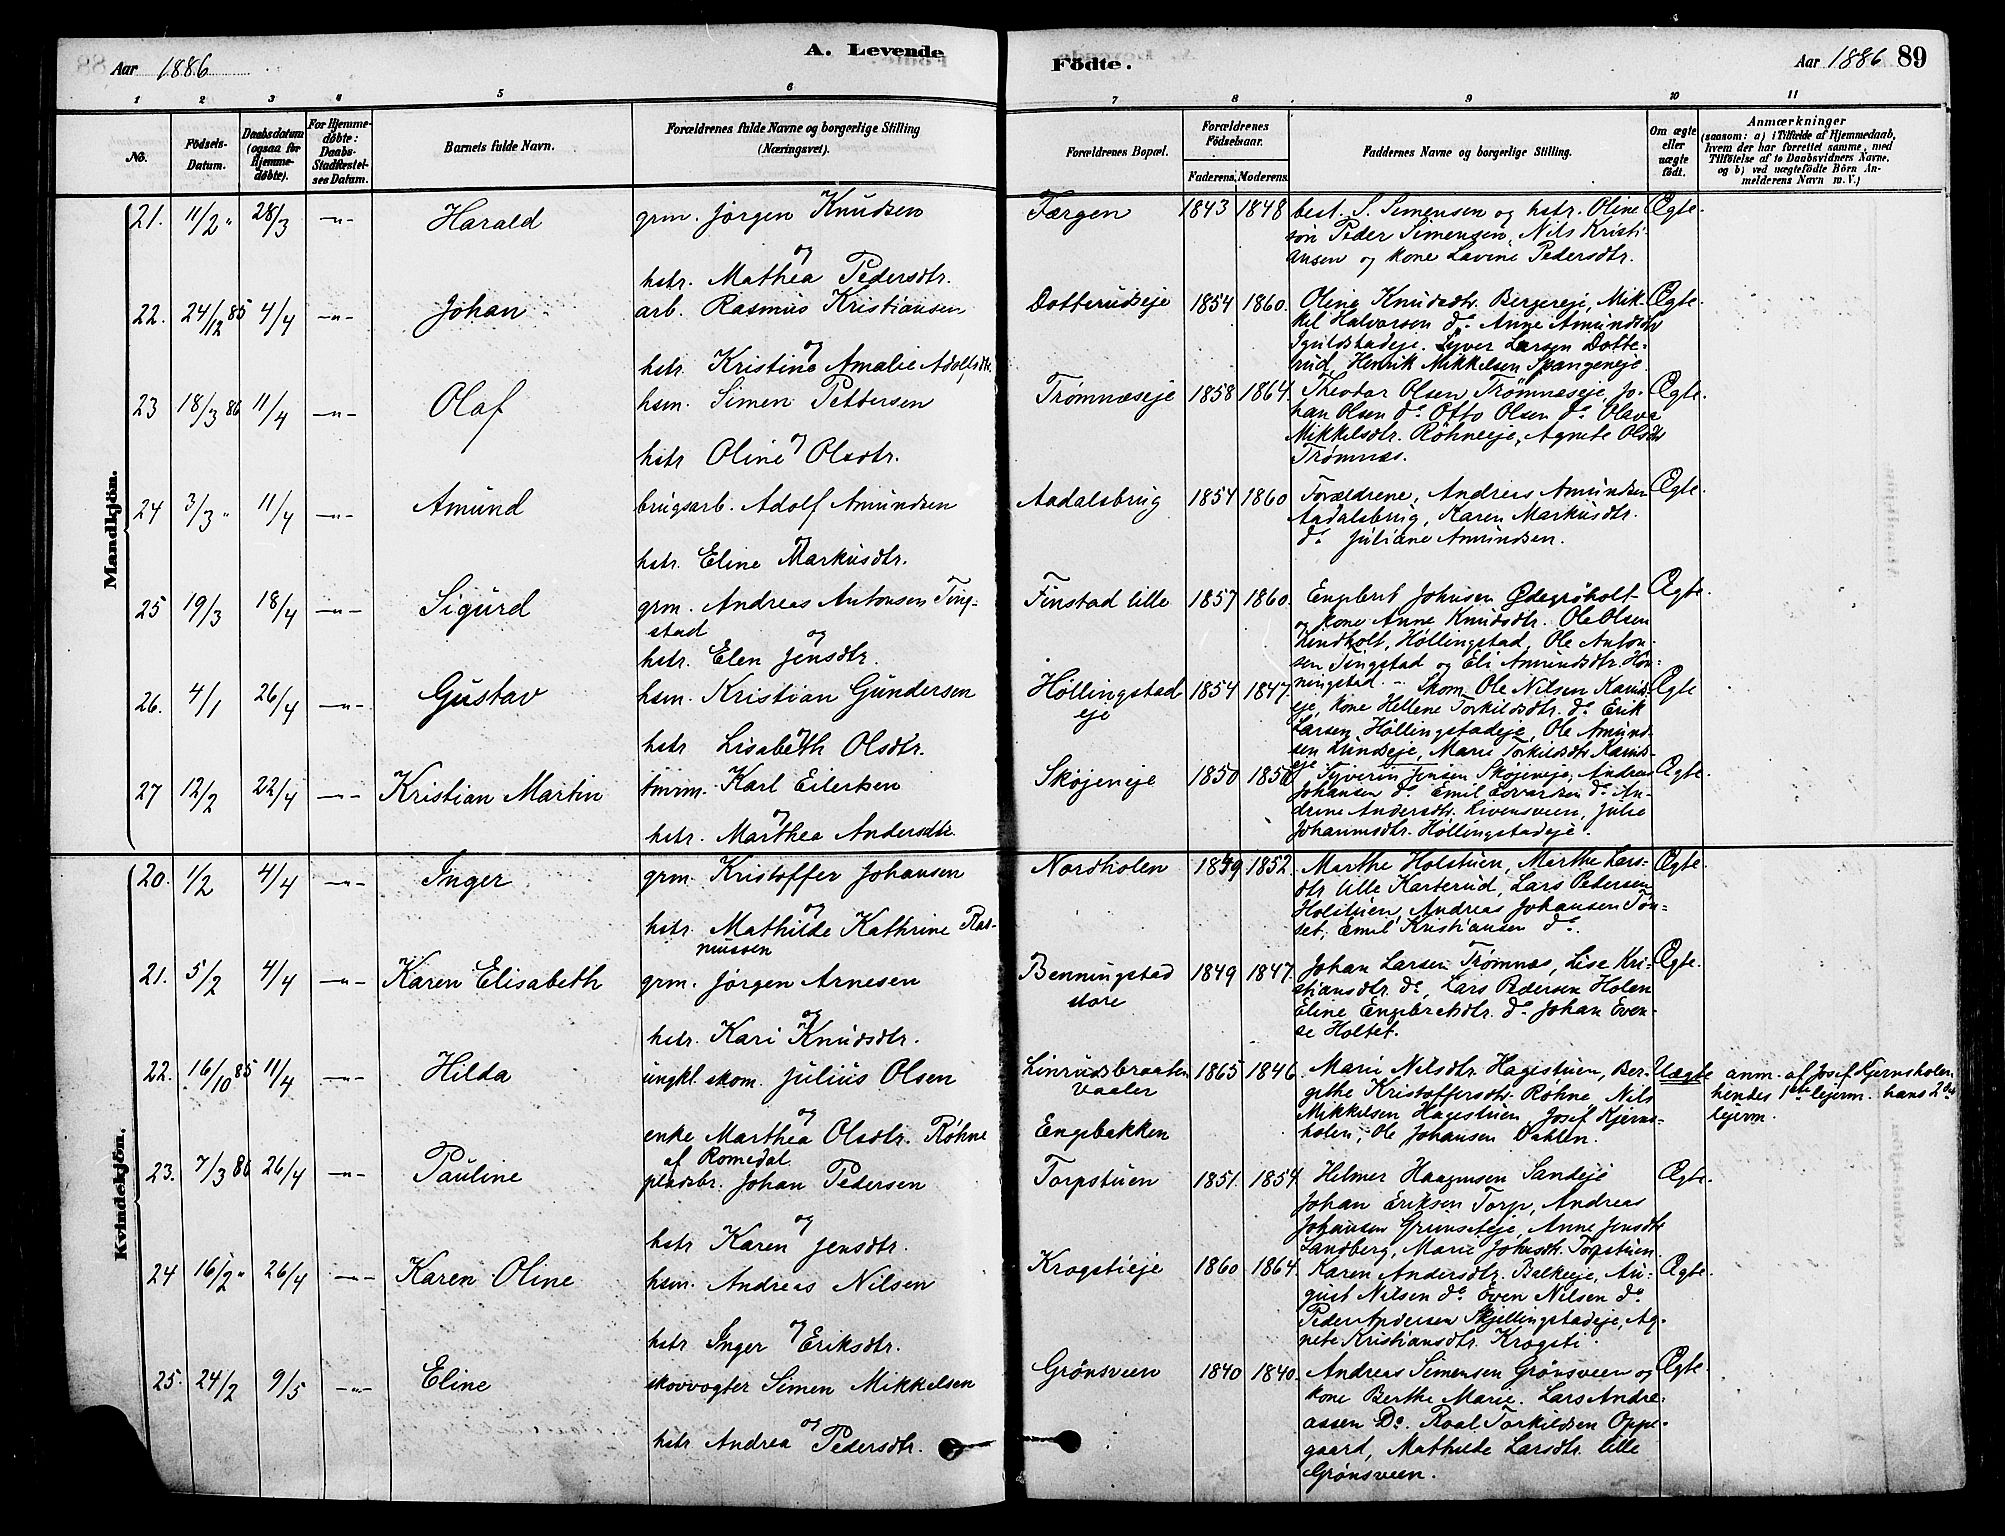 Aar 1886
A. Levende
Födte.
Aar 1886 89
1 2 3 4 5 6 7 8 9 10 11
No.
Födsels-
Datum.
Daabsdatum
(ogsaa for
Hjemme-
døbte).
For Hjemme-
døbte:
Daabs-
Stadfæstel-
ses Datum.
Barnets fulde Navn.
Forældrenes fulde Navne og borgerlige Stilling
(Næringsvei).
Forældrenes Bopæl.
Forældrenes
Födselsaar.
Faderens. Moderens.
Faddernes Navne og borgerlige Stilling.
Om ægte
eller
uægte
født.
Anmærkninger
(saasom: a) i Tilfælde af Hjemmedaab,
hvem der har forrettet samme, med
Tilföielse af to Daabsvidners Navne,
og b) ved uægtefödte Börn An-
melderens Navn m. V.)
Mandkjön.
21. 11/2 " 28/3 -"- Harald grm. Jörgen Knudsen
og
hstr. Mathea Pedersdtr.
Færgen 1843 1848 best. S. Simensen og hstr. Oline
sön Peder Simensen, Nils Kristi-
ansen og kone Lavine Pedersdtr. Ægte.
22. 24/12 85 4/4 -"- Johan arb. Rasmus Kristiansen
og
hstr. Kristine Amalie Adolfsdtr.
Dotterudseje 1854 1860. Oline Knudsdtr. Bergereje, Mik-
kel Halvorsen do. Anne Amundsdtr
Syver Larsen Dotte-
rud, Henrik Mikkelsen Spangeneje Ægte.
23 18/3 86 11/4 -"- Olaf hsm. Simen Pettersen
og
hstr Oline Olsdtr.
Trømnæseje 1858 1864. Theodor Olsen Trømnæseje, Jo-
han Olsen do. Otto Olsen do. Olava
Mikkelsdtr. Röhneeje, Agnete Olsdtr
Trømnæs. Ægte.
24 3/3 " 11/4 -"- Amund brugsarb. Adolf Amundsen
og
hstr. Eline Markusdtr.
Aadalsbrug 1854 1860 Forældrene, Andreas Amundsen
Aadalsbrug, Karen Markusdtr.
do. Juliane Amundsen. Ægte
25 19/3 18/4 -"- Sigurd grm. Andreas Antonsen Ting-
stad
og
hstr. Elen Jensdtr.
Finstad lille 1857 1860. Engebret Johnsen Ødegröholt
og kone Anne Knudsdtr. Ole Olsen
Lundholt, Höllingstad, Ole Anton-
sen Tingstad og Eli Amundsdtr. Hön-
ningstad. Ægte.
26. 4/1 26/4 -"- Gustav hsm. Kristian Gundersen
og
hstr Lisabeth Olsdtr.
Höllingstad
eje 1854 1847. Skom. Ole Nilsen
eje, kone Hellene Torkildsdtr. do. Erik
Larsen, Höllingstadeje, Ole Amund-
sen Lundseje, Marie Torkildsdtr.
eje. Ægte
27 12/2 22/4 -"- Kristian Martin tömm. Karl Eilertsen
og
hstr. Marthea Andersdtr.
Skøjeneje 1850 1850 Syverin Jensen Skøjeneje, Andreas
Johansen do. Emil Edvardsen do. An-
drine Andersdtr. Livensveen, Julie
Johannsdtr. Höllingstadeje. Ægte.
Kvindekjön.
20. 1/2 4/4 -"- Inger grm. Kristoffer Johansen
og
hstr. Mathilde Kathrine Ras-
mussen
Nordholen 1849 1852. Marthe Holstuen, Marthe Lars-
dtr lille Karterud, Lars Pedersen
Holstuen, Andreas Johansen Tön-
set, Emil Kristiansen do. Ægte.
21. 5/2 4/4 -"- Karen Elisabeth grm. Jörgen Arnesen
og
hstr. Kari Knudsdtr.
Benningstad
store 1849 1847. Johan Larsen Trömnæs, Lise Kri-
stiansdtr. do, Lars Pedersen Holen
Eline Engebretsdtr. do. Johan Even-
se Holtet. Ægte.
22. 16/10 85 11/4 -"- Hilda ungkl. skom. Julius Olsen
og
enke Marthea Olsdtr. Röhne
af Romedal.
Linrudsbraaten
Vaaler
Engebakken
1865 1846. Mari Nilsdtr. Hagestuen, Ber-
gethe Kristoffersdtr. Röhne, Nils
Mikkelsen Hagestuen Josef Kjerns-
holen, Ole Johansen Dahlen. Uægte anm. af Josef Kjernsholen
hendes 1ste lejerm. hans 2det
lejerm.
23. 7/3 86 26/4 -"- Pauline pladsbr. Johan Pedersen
og
hstr Karen Jensdtr.
Torpstuen 1851. 1854. Helmer Haagensen Sandeje
Johan Eriksen Torp, Andreas
Johansen Grimseteje, Anne Jensdtr
Sandberg, Marie Johnsdtr. Torpstuen. Ægte.
24 16/2 " 26/4 -"- Karen Oline hsm. Andreas Nilsen
og
hstr Inger Eriksdtr.
Krogstieje 1860 1864. Karen Andersdtr. Balkeeje, Au-
gust Nilsen do. Even Nilsen do.
Peder Andersen Skjellingstadeje, Ag-
nete Kristiansdtr. Krogsti Ægte.
25. 24/2 9/5 -"- Eline skovvogter Simen Mikkelsen
og
hstr Andrea Pedersdtr.
Grönsveen 1840 1840. Andreas Simensen Grönsveen og
kone Berthe Marie. Lars Andre-
assen Do. Roal Torkildsen Oppe-
gaard, Mathilde Larsdtr. lille
Grönsveen. Ægte.